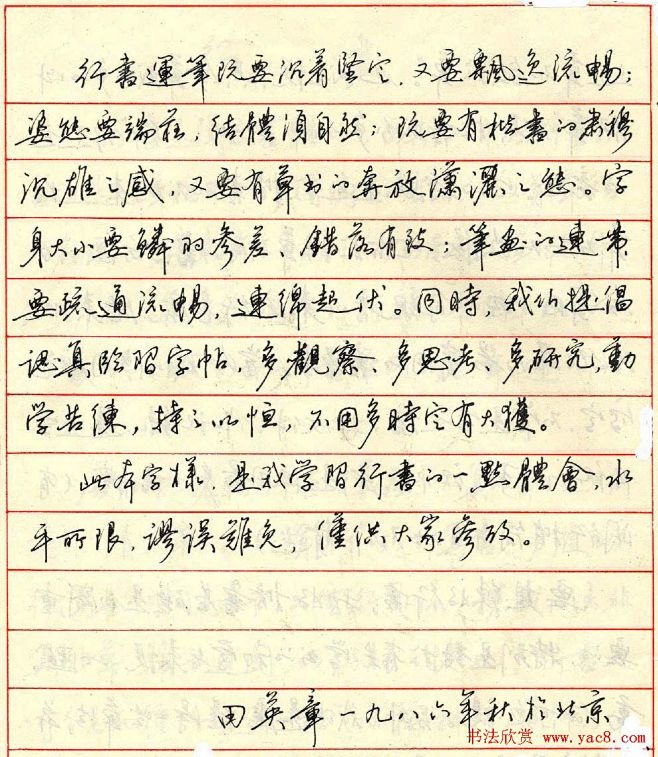 行書運筆既要沉着堅定，又要飄逸流暢；
姿態要端莊，結體須自然；既要有楷書的肅穆
沉雄之感，又要有草书的奔放瀟灑之態。字
身大小要鱗的參差、錯落有致；筆画的連带
要疏通流暢，連綿起伏。同時，我们提倡
認真临習字帖，多觀察、多思考、多研究，勤
学苦練，持之以恒，不用多時定有大獲。
此本字樣，是我学習行書的一點體會，水
平所限，謬误難免，僅供大家參攷。
田英章一九八六年秋於北京
书法欣赏 www.yac8.com